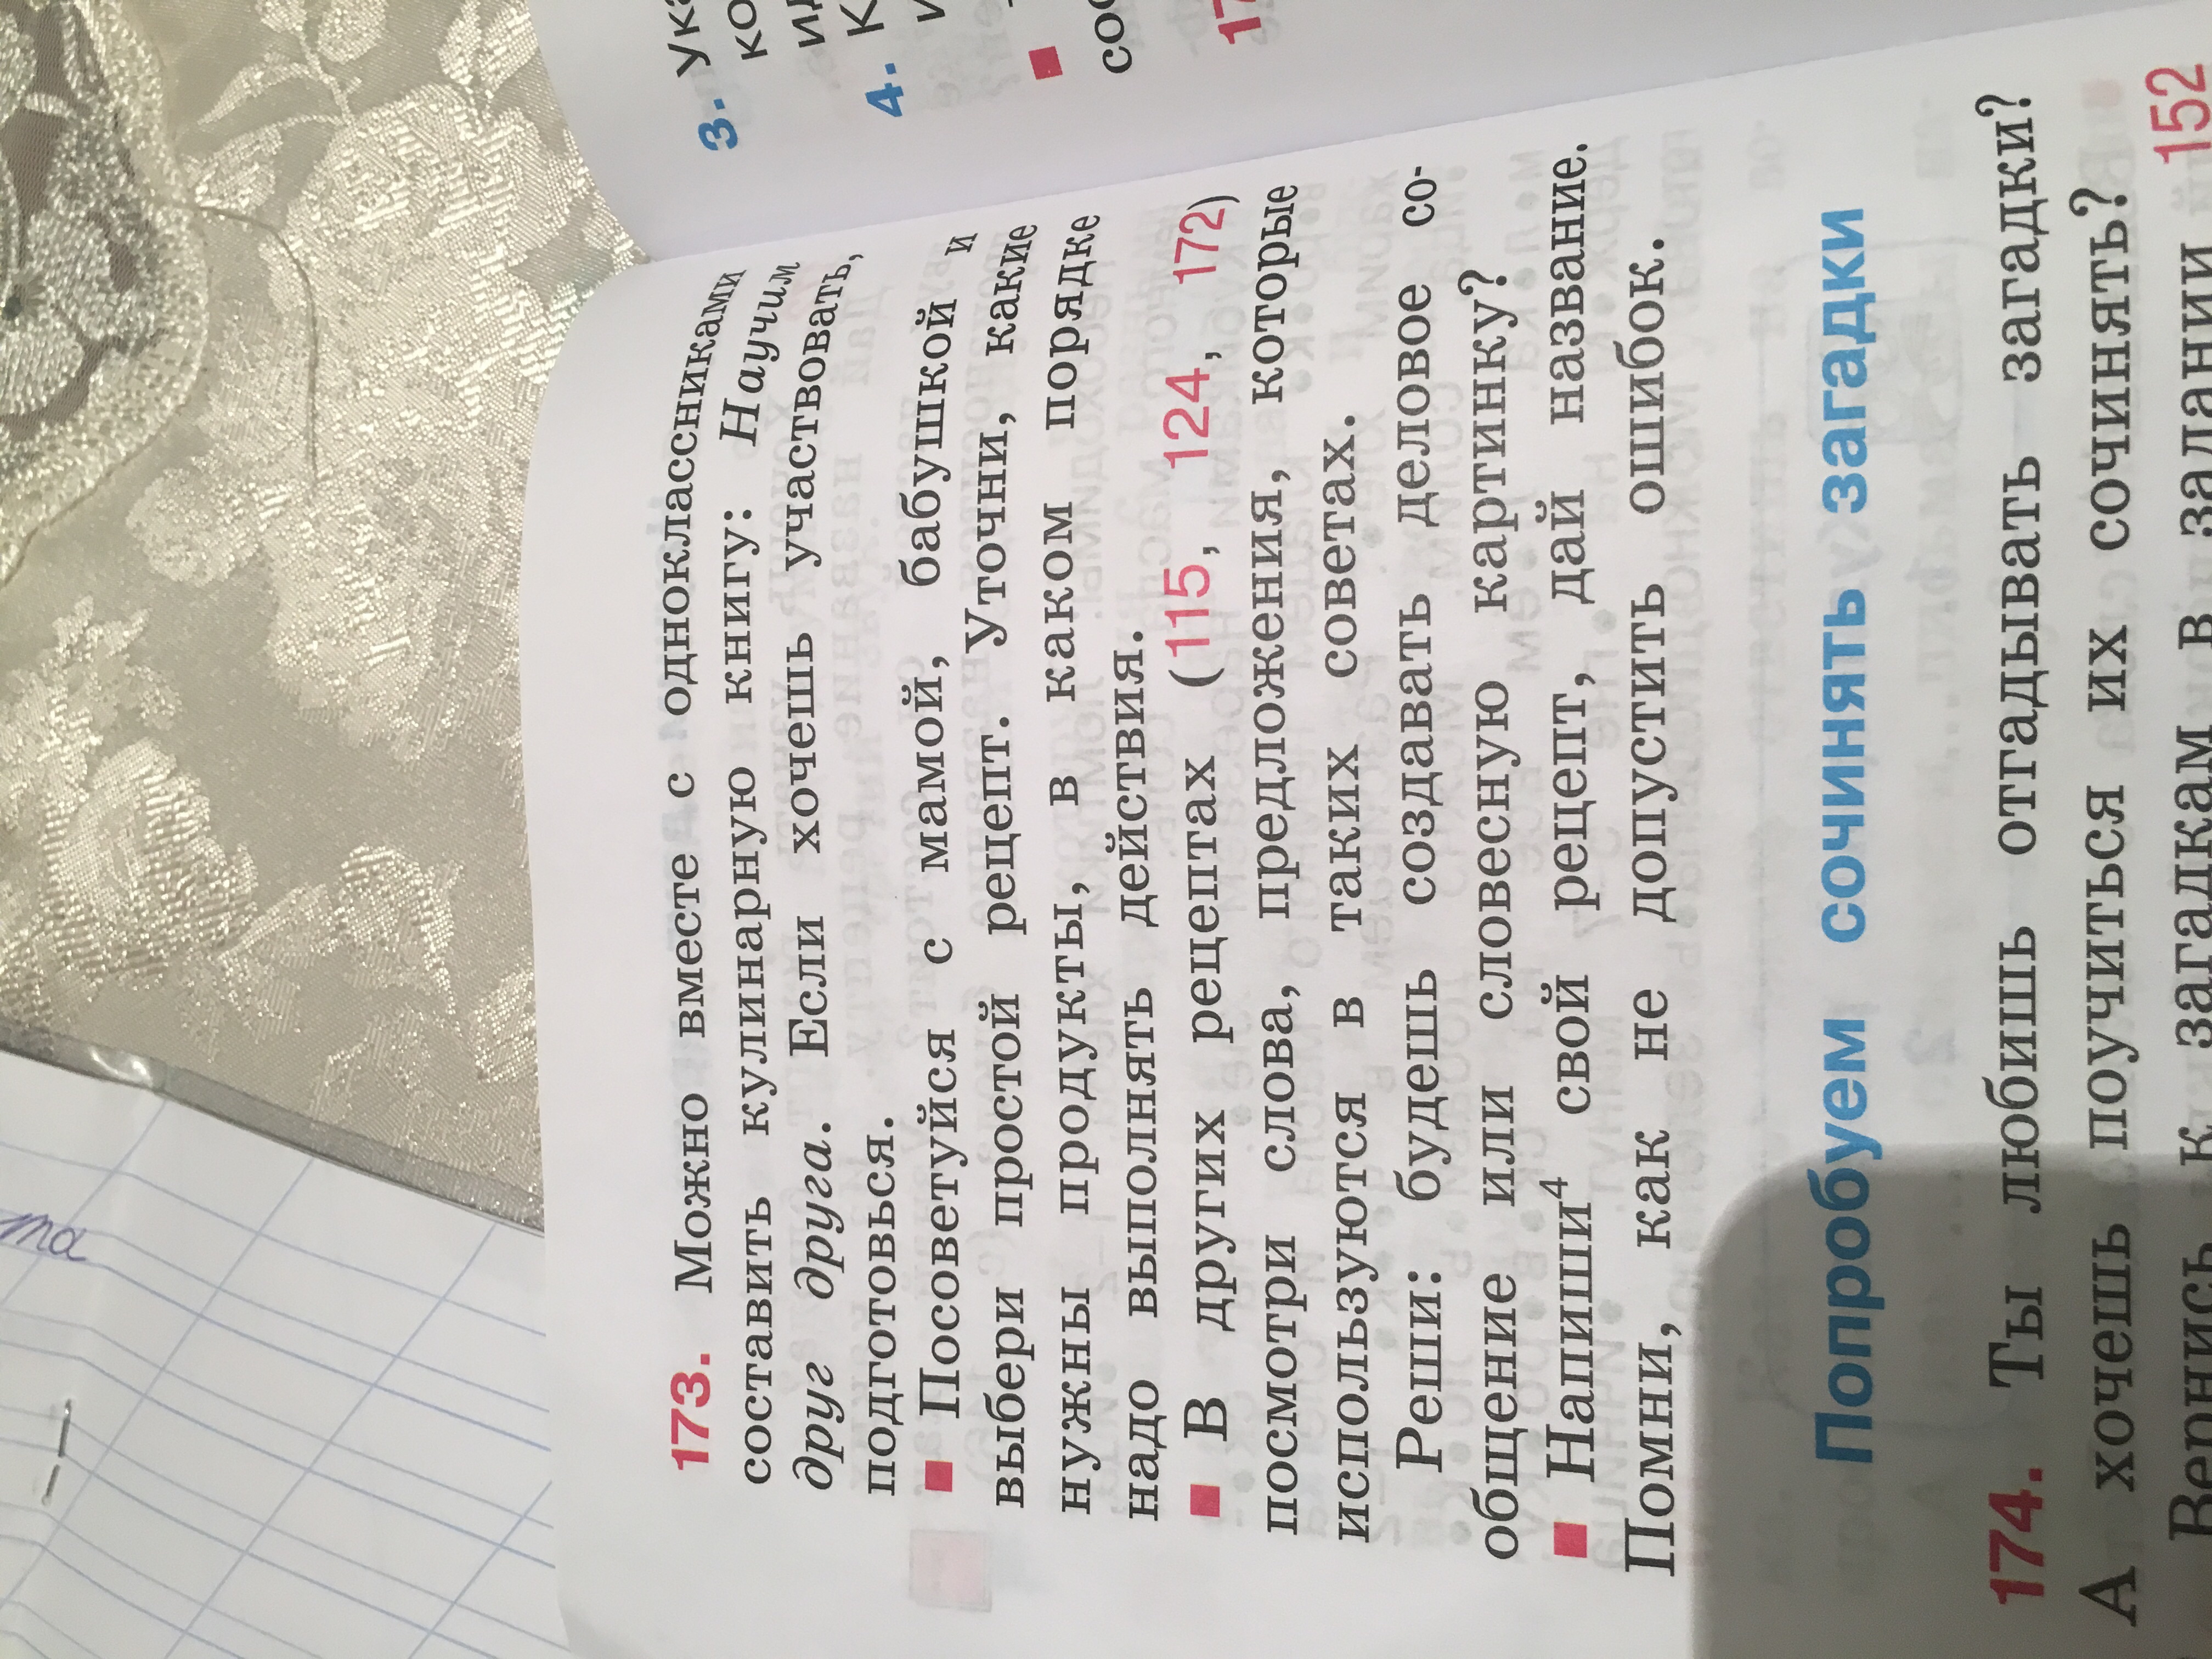 та
3. Ука
ко
4. К
со
17
173. Можно вместе с одноклассниками
составить кулинарную книгу: Научим
друг друга. Если хочешь участвовать,
подготовься.
Посоветуйся с мамой, бабушкой и
выбери простой рецепт. Уточни, какие
нужны продукты, в каком порядке
надо выполнять действия.
В других рецептах (115, 124, 172)
посмотри слова, предложения, которые
используются в таких советах.
Реши: будешь создавать деловое со-
общение или словесную картинку?
Напиши4 свой рецепт, дай название.
Помни, как не допустить ошибок.
Попробуем сочинять загадки
174. Ты любишь отгадывать загадки?
А хочешь поучиться их сочинять?
Вернись к загадкам в задании 152